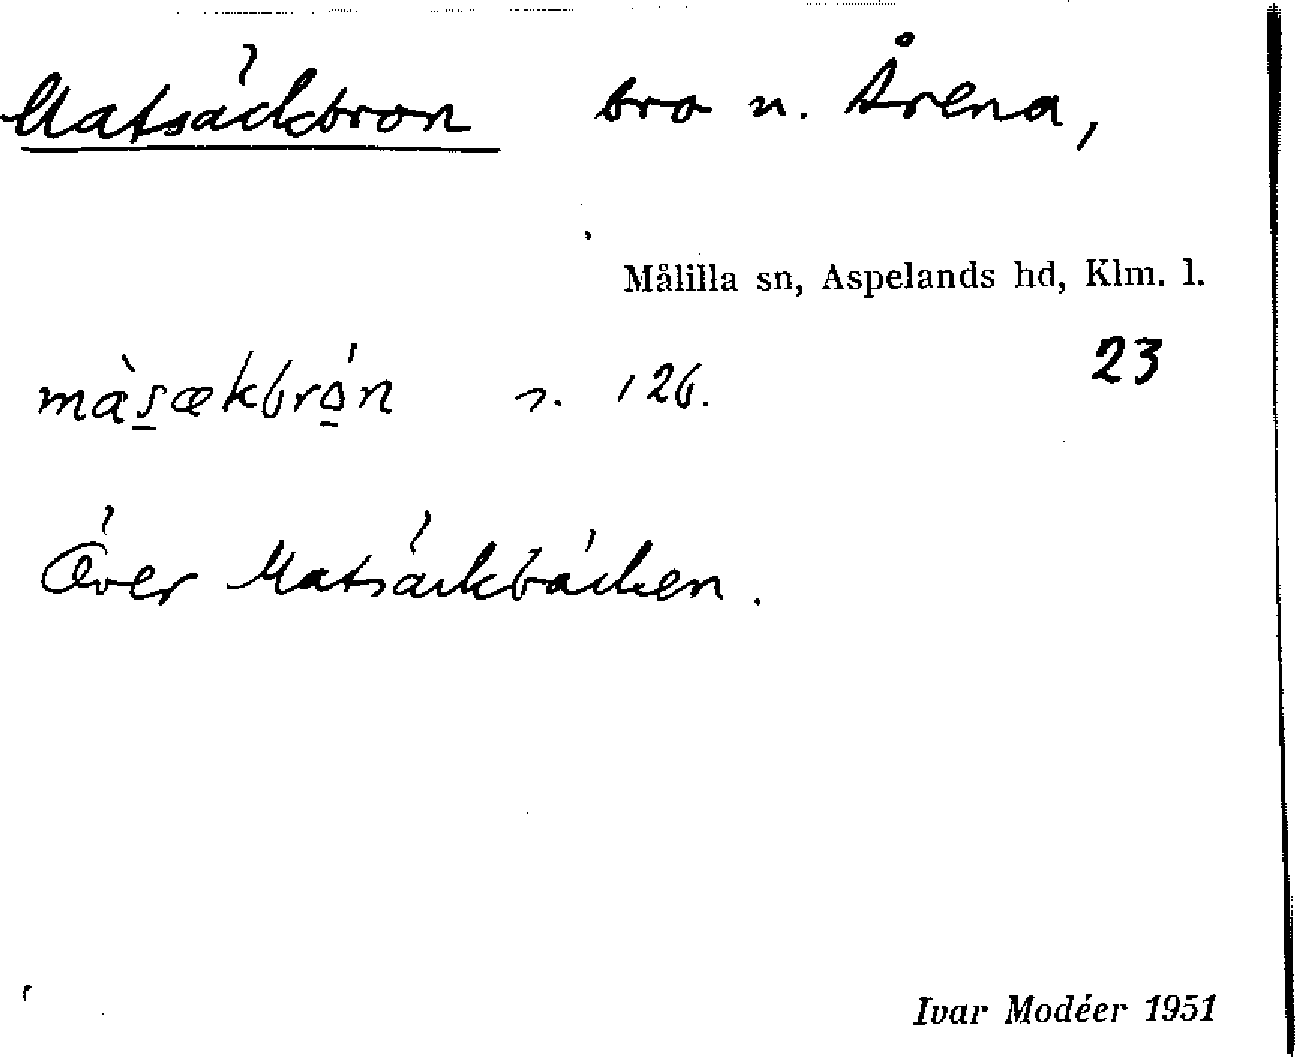 Matsäckbron bro n. Årena,
Målilla sn, Aspelands hd, Klm. l.
23
màsækbrón s. 126.
Över Matsäckbäcken.
Ivar Modéer 1951